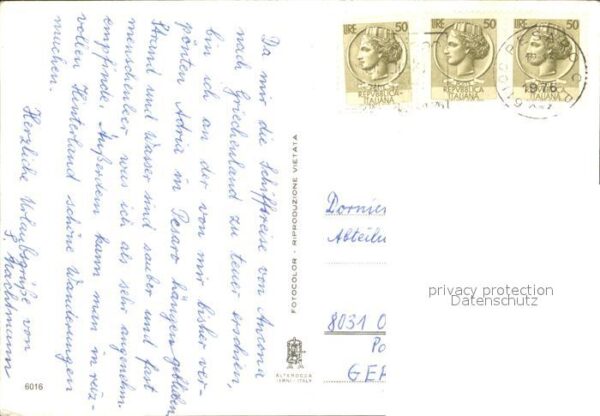 Da mir die Schiffsreise von Ancona
nach Griechenland zu teuer erschien,
bin ich an der von mir bisher ver-
pönten Adria in Pesaro hängen geblieben.
Strand und Wasser sind sauber und fast
menschenleer was ich als sehr angenehm
empfinde. Außerdem kann man im reiz-
vollen Hinterland schöne Wanderungen
machen.
Herzliche Urlaubsgrüße von
S. Nachtmann
6016
FOTOCOLOR - RIPRODUZIONE VIETATA
ALTEROCCA
TERNI - ITALY
LIRE 50
REPVBBLICA
ITALIANA
LIRE 50
REPVBBLICA
ITALIANA
LIRE 50
REPVBBLICA
ITALIANA
PESARO
1976
Dornier
Abteilu
8031 O
Po
GER
privacy protection
Datenschutz